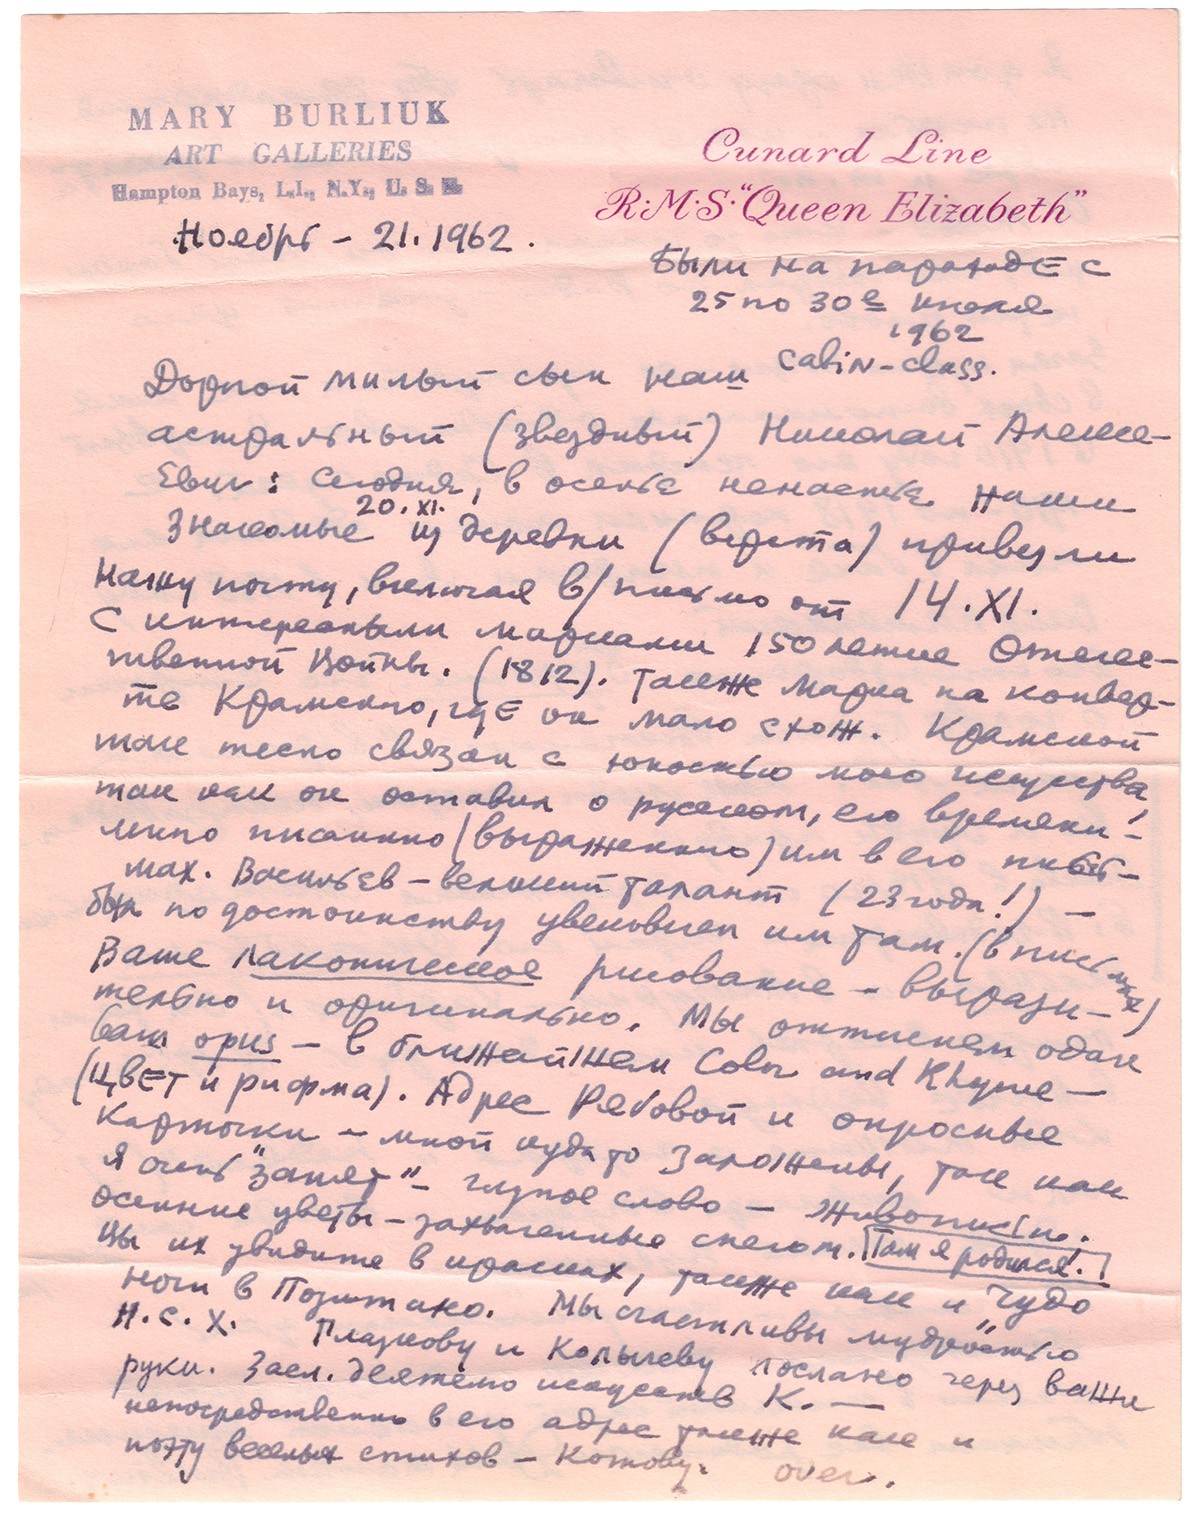 MARY BURLIUK
ART GALLERIES
Hampton Bays, L.I., N.Y., U. S. A.
Cunard Line
R.M.S. "Queen Elizabeth"
Ноябрь – 21. 1962.
Были на пароходе с
25 по 30е июля
1962
cabin-class.
Дорогой милый сын наш
астральный (звездный) Николай Алексе-
евич: Сегодня, в осенье ненастье наши
20.XI.
знакомые из деревни (верста) привезли
нашу почту, включая в/письмо от 14.XI.
с интересными марками 150летие Отечес-
твенной Войны. (1812). Также марка на конвер-
те Крамского, где он мало схож. Крамской
так тесно связан с юностью моего искусства,
так как он оставил о русском, его времени!–
много писанного (выраженного) им в его письь-
мах. Васильев – великий талант (23 года!) –
был по достоинству увековечен им там. (в письмах)
Ваше лаконическое рисование – вырази-
тельно и оригинально. Мы оттиснем один
ваш opus – в ближайшем Color and Rhyme –
(Цвет и рифма). Адрес Рябовой и опросные
карточки – мной куда то заложены, так как
я очень "занят" – глупое слово – живописью.
осенние цветы – захваченные снегом. Там я родился!
Вы их увидите в красках, также как и Чудо
ночи в Позитано. Мы счастливы мудростью
Н.С.Х. Глазкову и Колычеву послано через ваши
руки. Засл. деятелю искусств К. —
непосредственно в его адрес также как и
поэту веселых стихов – Котову. over.